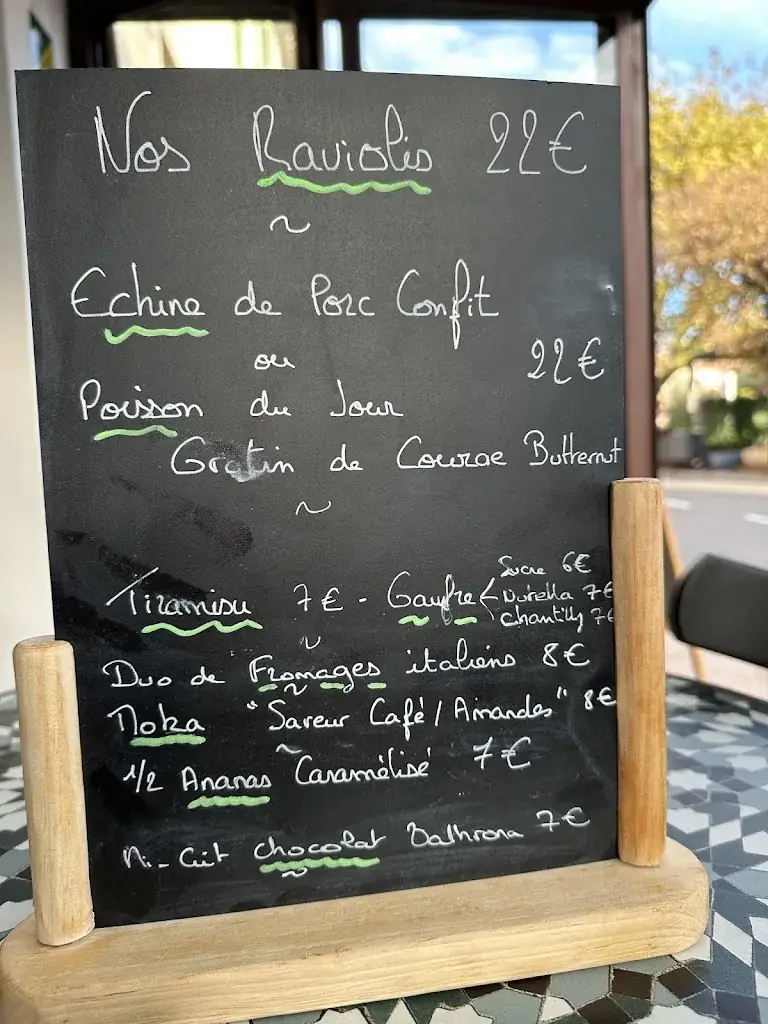 Nos Raviolis 22€
~
Echine de Porc Confit
ou
22€
Poisson du Jour
Gratin de Courge Butternut
~
Tiramisu 7€ - Gaufre < Sucre 6€
Nutella 7€
Chantilly 7€
~
Duo de Fromages italiens 8€
~
Moka "Saveur Café / Amandes" 8€
~
1/2 Ananas Caramélisé 7€
Mi-Cuit chocolat 7€
~